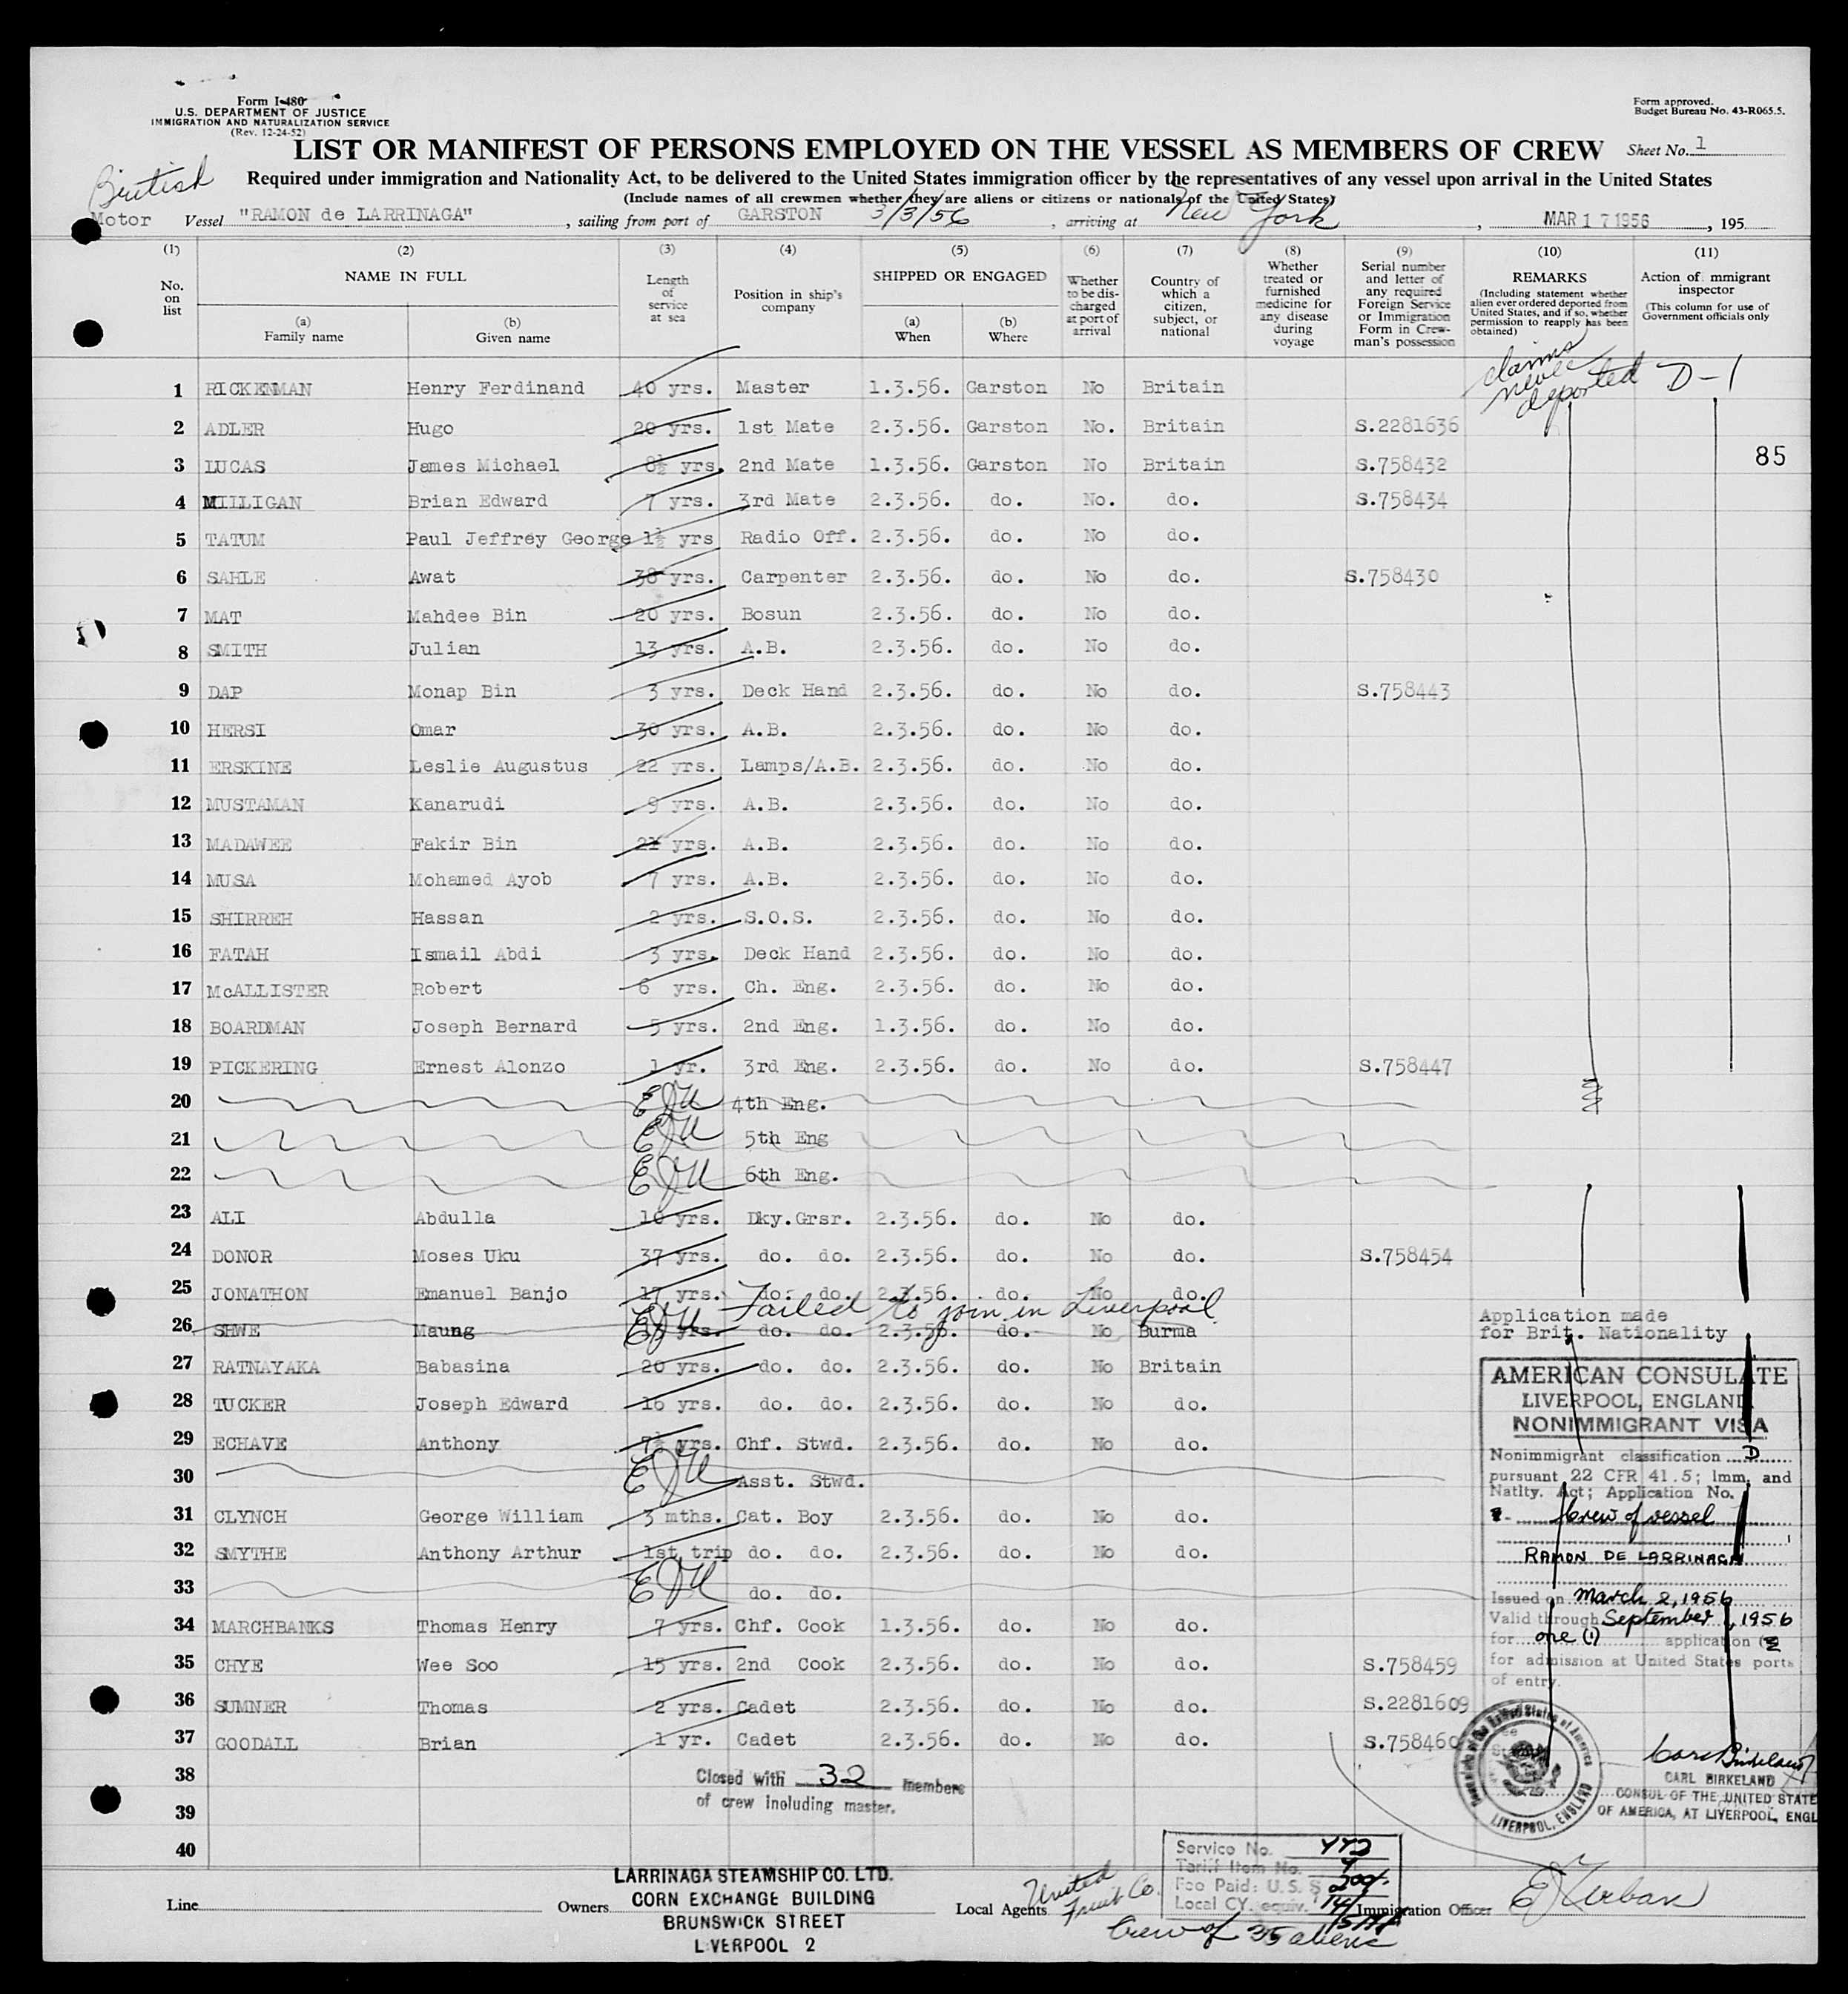 Form I-480
U.S. DEPARTMENT OF JUSTICE
IMMIGRATION AND NATURALIZATION SERVICE
(Rev. 12-24-52)
Form approved.
Budget Bureau No. 43-R065.5.
LIST OR MANIFEST OF PERSONS EMPLOYED ON THE VESSEL AS MEMBERS OF CREW Sheet No. 1
British
Required under immigration and Nationality Act, to be delivered to the United States immigration officer by the representatives of any vessel upon arrival in the United States
(Include names of all crewmen whether they are aliens or citizens or nationals of the United States)
Motor Vessel "RAMON de LARRINAGA", sailing from port of GARSTON 3/3/56, arriving at New York, MAR 17 1956, 195
(1) No. on list
(2) NAME IN FULL
(a) Family name
(b) Given name
(3) Length of service at sea
(4) Position in ship's company
(5) SHIPPED OR ENGAGED
(a) When
(b) Where
(6) Whether to be discharged at port of arrival
(7) Country of which a citizen, subject, or national
(8) Whether treated or furnished medicine for any disease during voyage
(9) Serial number and letter of any required Foreign Service or Immigration Form in Crewman's possession
(10) REMARKS
(Including statement whether alien ever ordered deported from United States, and if so, whether permission to reapply has been obtained)
(11) Action of immigrant inspector
(This column for use of Government officials only)
claims never deported D-1
1 RICKENMAN Henry Ferdinand 40 yrs. Master 1.3.56. Garston No Britain
2 ADLER Hugo 20 yrs. 1st Mate 2.3.56. Garston No. Britain S.2281636
3 LUCAS James Michael 8½ yrs. 2nd Mate 1.3.56. Garston No Britain S.758432
85
4 MILLIGAN Brian Edward 7 yrs. 3rd Mate 2.3.56. do. No. do. S.758434
5 TATUM Paul Jeffrey George 1½ yrs Radio Off. 2.3.56. do. No do.
6 SAHLE Awat 38 yrs. Carpenter 2.3.56. do. No do. S.758430
7 MAT Mahdee Bin 20 yrs. Bosun 2.3.56. do. No do.
8 SMITH Julian 13 yrs. A.B. 2.3.56. do. No do.
9 DAP Monap Bin 3 yrs. Deck Hand 2.3.56. do. No do. S.758443
10 HERSI Omar 30 yrs. A.B. 2.3.56. do. No do.
11 ERSKINE Leslie Augustus 22 yrs. Lamps/A.B. 2.3.56. do. No do.
12 MUSTAMAN Kanarudi 9 yrs. A.B. 2.3.56. do. No do.
13 MADAWEE Fakir Bin yrs. A.B. 2.3.56. do. No do.
14 MUSA Mohamed Ayob 7 yrs. A.B. 2.3.56. do. No do.
15 SHIRREH Hassan 2 yrs. S.O.S. 2.3.56. do. No do.
16 FATAH Ismail Abdi 3 yrs. Deck Hand 2.3.56. do. No do.
17 McALLISTER Robert 6 yrs. Ch. Eng. 2.3.56. do. No do.
18 BOARDMAN Joseph Bernard 5 yrs. 2nd Eng. 1.3.56. do. No do.
19 PICKERING Ernest Alonzo 1 yr. 3rd Eng. 2.3.56. do. No do. S.758447
20 EJU 4th Eng.
21 EJU 5th Eng
22 EJU 6th Eng.
23 ALI Abdulla 10 yrs. Dky.Grsr. 2.3.56. do. No do.
24 DONOR Moses Uku 37 yrs. do. do. 2.3.56. do. No do. S.758454
25 JONATHON Emanuel Banjo 17 yrs. do. do. 2.3.56. do. No do.
EJU Failed to join in Liverpool
26 SHWE Maung yrs. do. do. 2.3.56. do. No Burma
Application made
for Brit. Nationality
27 RATNAYAKA Babasina 20 yrs. do. do. 2.3.56. do. No Britain
28 TUCKER Joseph Edward 16 yrs. do. do. 2.3.56. do. No do.
29 ECHAVE Anthony 7½ yrs. Chf. Stwd. 2.3.56. do. No do.
30 EJU Asst. Stwd.
31 CLYNCH George William 3 mths. Cat. Boy 2.3.56. do. No do.
32 SMYTHE Anthony Arthur 1st trip do. do. 2.3.56. do. No do.
33 EJU do. do.
34 MARCHBANKS Thomas Henry 7 yrs. Chf. Cook 1.3.56. do. No do.
35 CHYE Wee Soo 15 yrs. 2nd Cook 2.3.56. do. No do. S.758459
36 SUMNER Thomas 2 yrs. Cadet 2.3.56. do. No do. S.2281609
37 GOODALL Brian 1 yr. Cadet 2.3.56. do. No do. S.758460
38
39
40
Closed with 32 members
of crew including master.
AMERICAN CONSULATE
LIVERPOOL, ENGLAND
NONIMMIGRANT VISA
Nonimmigrant classification D
pursuant 22 CFR 41.5; Imm. and
Natlty. Act; Application No.
Crew of vessel
RAMON DE LARRINAGA
Issued on March 2, 1956
Valid through September 1, 1956
for one (1) application
for admission at United States ports
of entry.
LIVERPOOL, ENGLAND
Carl Birkeland
CARL BIRKELAND
CONSUL OF THE UNITED STATE
OF AMERICA, AT LIVERPOOL, ENGL
Service No. 442
Tariff Item No. 4
Fee Paid: U.S. $
Local CY. equiv.
Line
Owners LARRINAGA STEAMSHIP CO. LTD.
CORN EXCHANGE BUILDING
BRUNSWICK STREET
LIVERPOOL 2
Local Agents United Fruit Co.
Immigration Officer E J Urban
Crew of 35 aliens